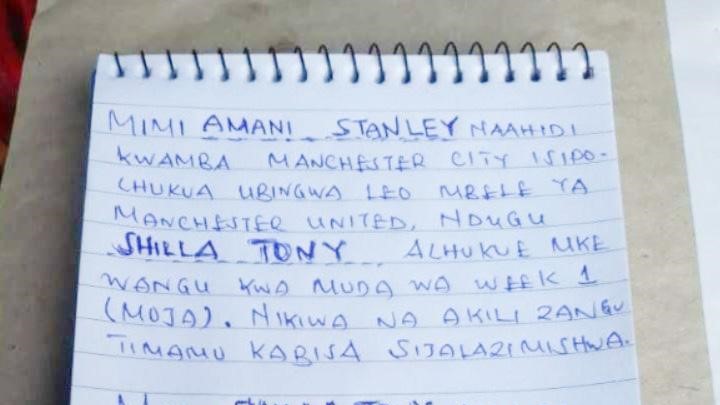 MIMI AMANI STANLEY NAAHIDI
KWAMBA MANCHESTER CITY ISIPO-
CHUKUA UBINGWA LEO MBELE YA
MANCHESTER UNITED, NDUGU
SHILLA TONY ALHUKUE MKE
WANGU KWA MUDA WA WEEK 1
(MOJA). NIKIWA NA AKILI ZANGU
TIMAMU KABISA SIJALAZIMISHWA.